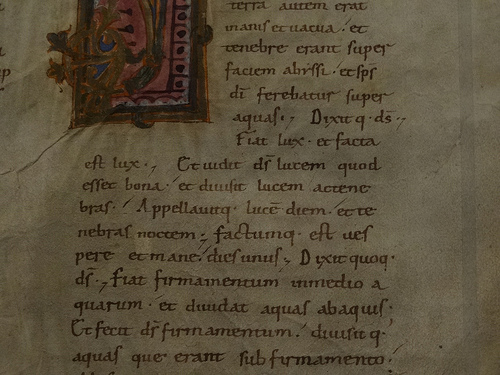 terra autem erat
inanis et vacua · et
tenebre erant super
faciem abyssi · et sp̄s
dī ferebatur super
aquas · Dixitq · ds̄ ·
Fiat lux · et facta
est lux · Et vidit ds̄ lucem quod
esset bona · et divisit lucem a tene
bras · Appellavitq · lucē diem · et te
nebras noctem · factumq · est ves
pere et mane · dies unus · Dixit quoq ·
ds̄ · Fiat firmamentum in medio a
quarum · et dividat aquas ab aquis ·
Et fecit ds̄ firmamentum · divisitq ·
aquas que erant sub firmamento ·